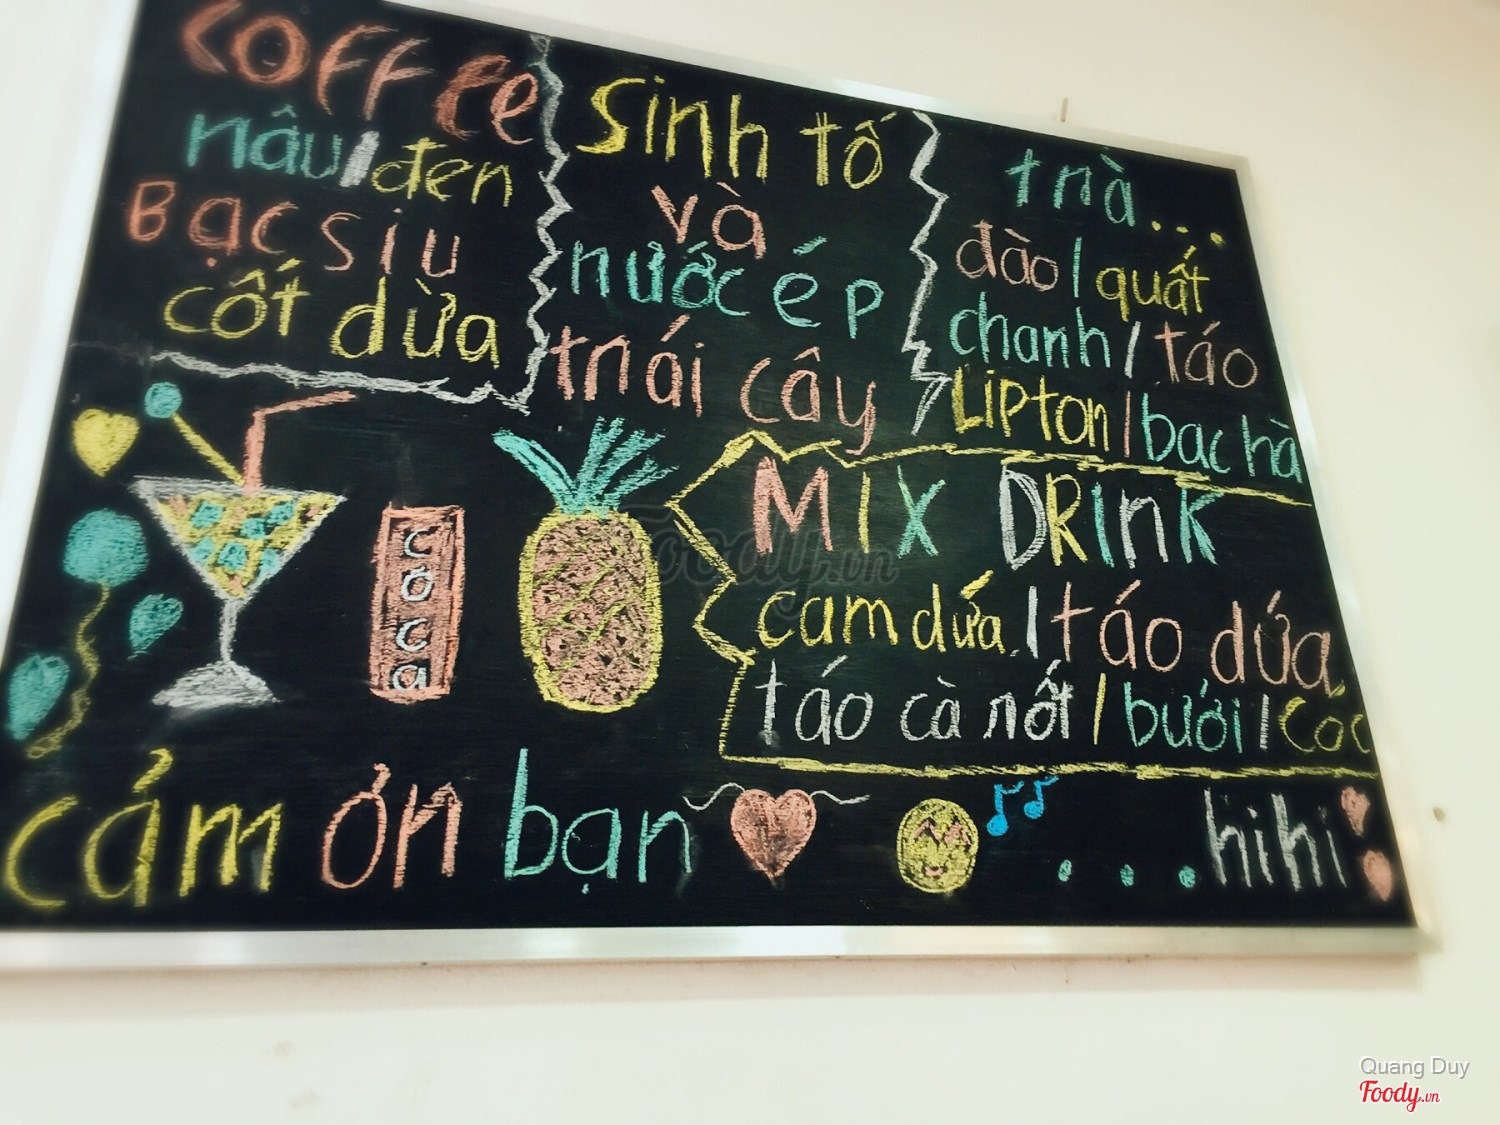 coffee
nâu/đen
Bạc siu
cốt dừa
sinh tố
và
nước ép
trái cây
trà...
đào/quất
chanh/táo
Lipton/bạc hà
coca
MIX DRINK
cam dứa/táo dứa
táo cà rốt/bưởi/cóc
cảm ơn bạn
...hihi
Foody.vn
Quang Duy
Foody.vn